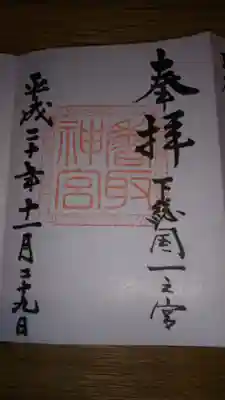 奉拝
下総国一之宮
香取
神宮
平成三十年十一月二十九日